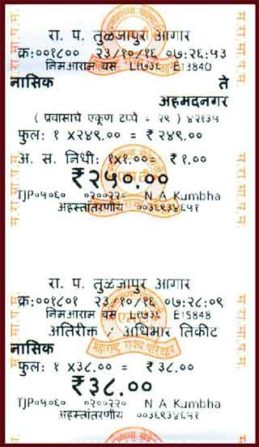 रा. प. तुळजापूर आगार
क्र:००१८०० २३/१०/१६ ०७:२६:५३
निमआराम बस L१७३६ E13840
नासिक ते
अहमदनगर
( प्रवासाचे एकूण टप्पे - २९ ) ४२१३५
फुल: १ X२४९.०० = ₹ २४९.००
अ. स. निधी: १X१.००= ₹ १.००
₹२५०.००
TJP०५०६० ०२००२२० N A Kumbha
अहस्तांतरणीय ००३६९३४८५१
रा. प. तुळजापूर आगार
क्र:००१८०१ २३/१०/१६ ०७:२८:०९
निमआराम बस L१७३६ E15848
अतिरीक्त / अधिभार तिकीट
नासिक
फुल: १ X३८.०० = ₹ ३८.००
₹३८.००
TJP०५०६० ०२००२२० N A Kumbha
अहस्तांतरणीय ००३६९३४८५१